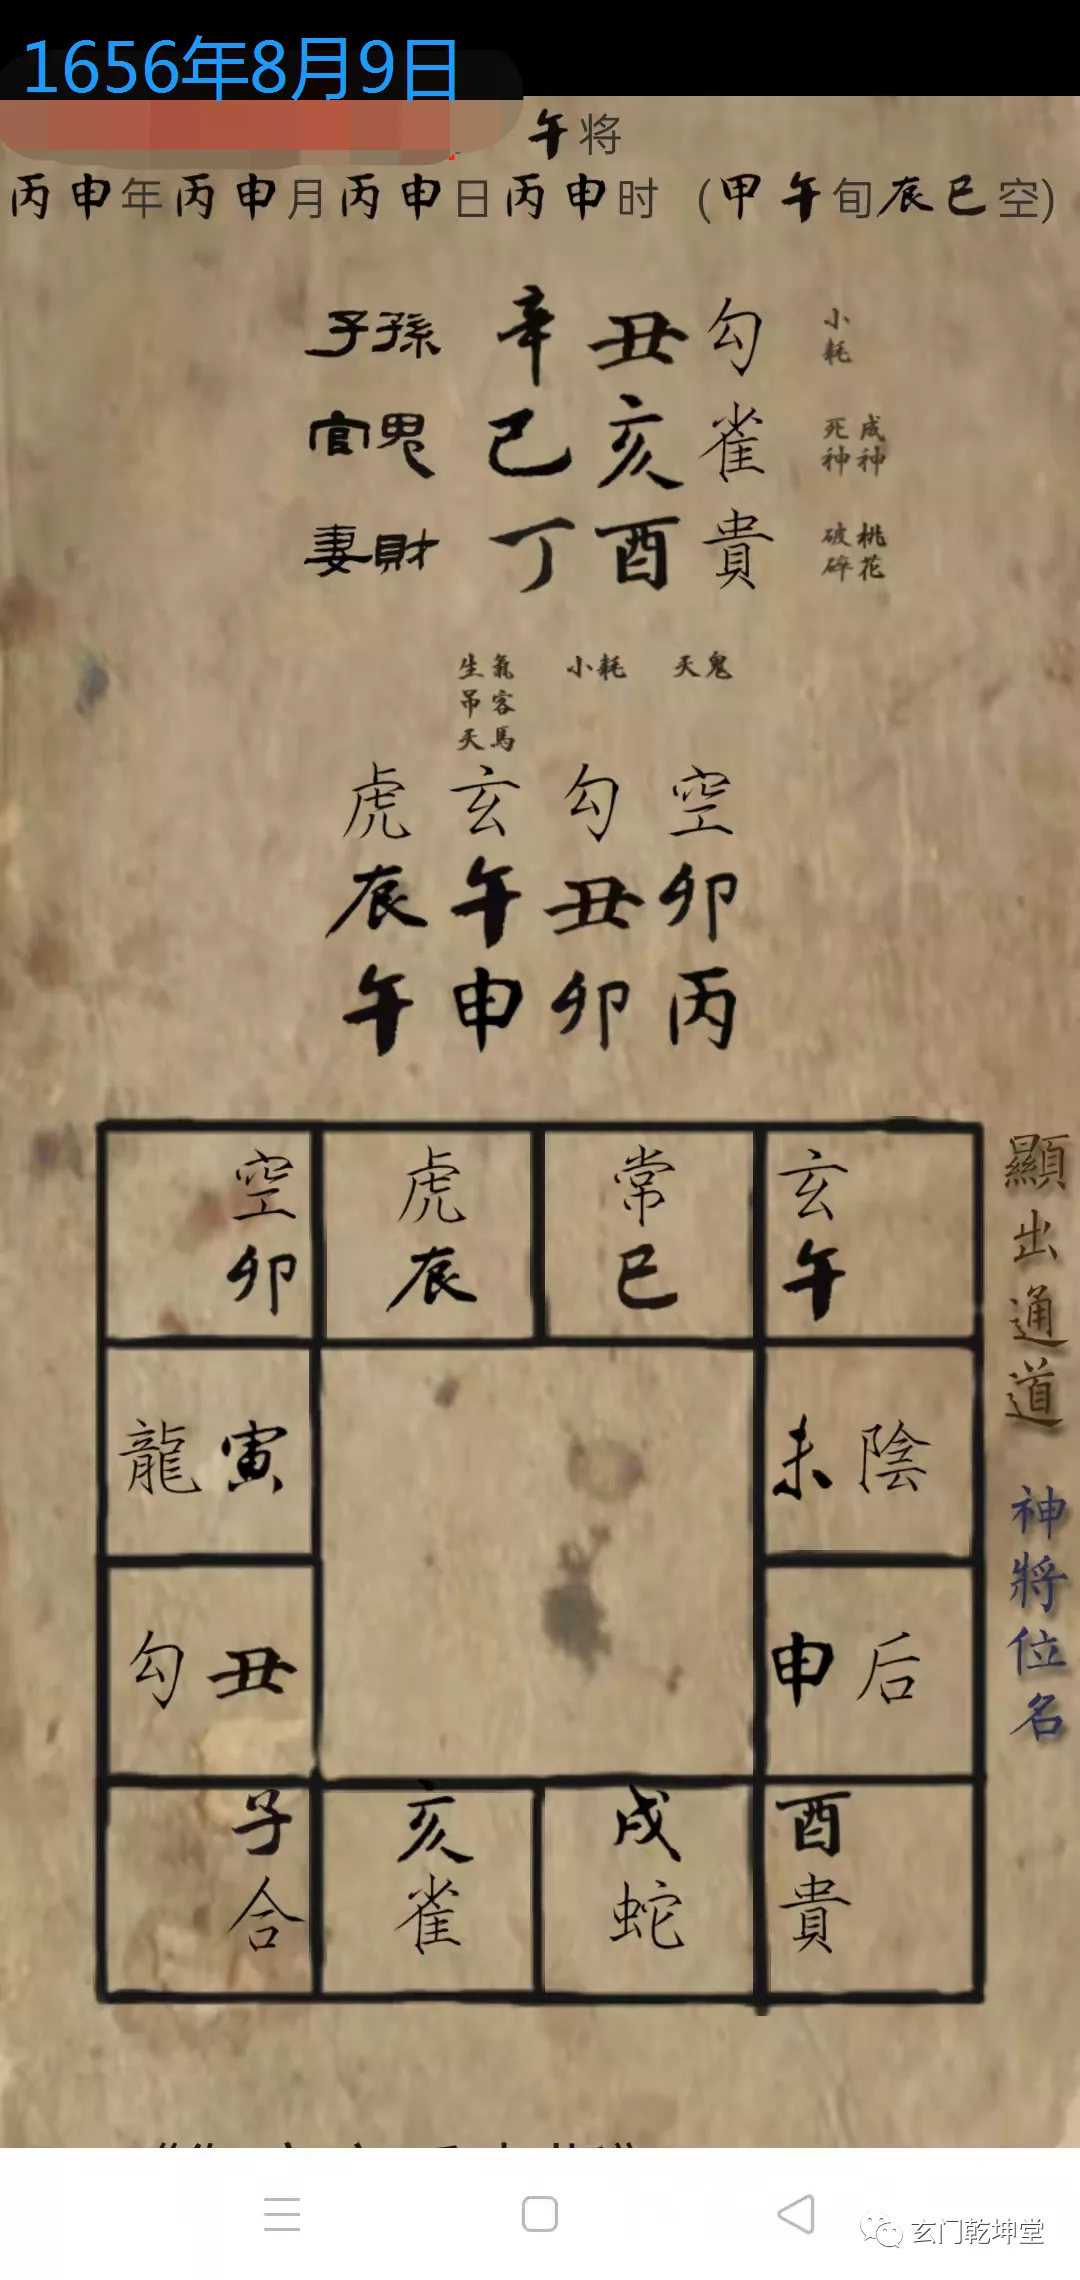 1656年8月9日
午将
丙申年丙申月丙申日丙申时 (甲午旬辰巳空)
子孫 辛丑勾 小耗
官鬼 己亥雀 死神 成神
妻財 丁酉貴 破碎 桃花
生氣 小耗 天鬼
吊客
天馬
虎玄勾空
辰午丑卯
午申卯丙
空 虎 常 玄
卯 辰 巳 午
龍寅 未陰
勾丑 申后
子 亥 戌 酉
合 雀 蛇 貴
顯出通道 神將位名
玄门乾坤堂